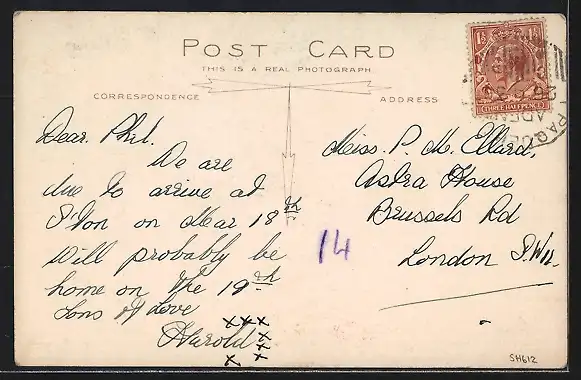 POST CARD
THIS IS A REAL PHOTOGRAPH
CORRESPONDENCE
ADDRESS
Dear Phil.
We are
due to arrive at
S'ton on Mar 18th.
Will probably be
home on the 19th
Tons of Love
Harold
xxx
xx
x x
Miss. P. M. Ellard,
Astra House
Brussels Rd
London S.W11.
14
THREE HALFPENCE
PAQUE
SH612